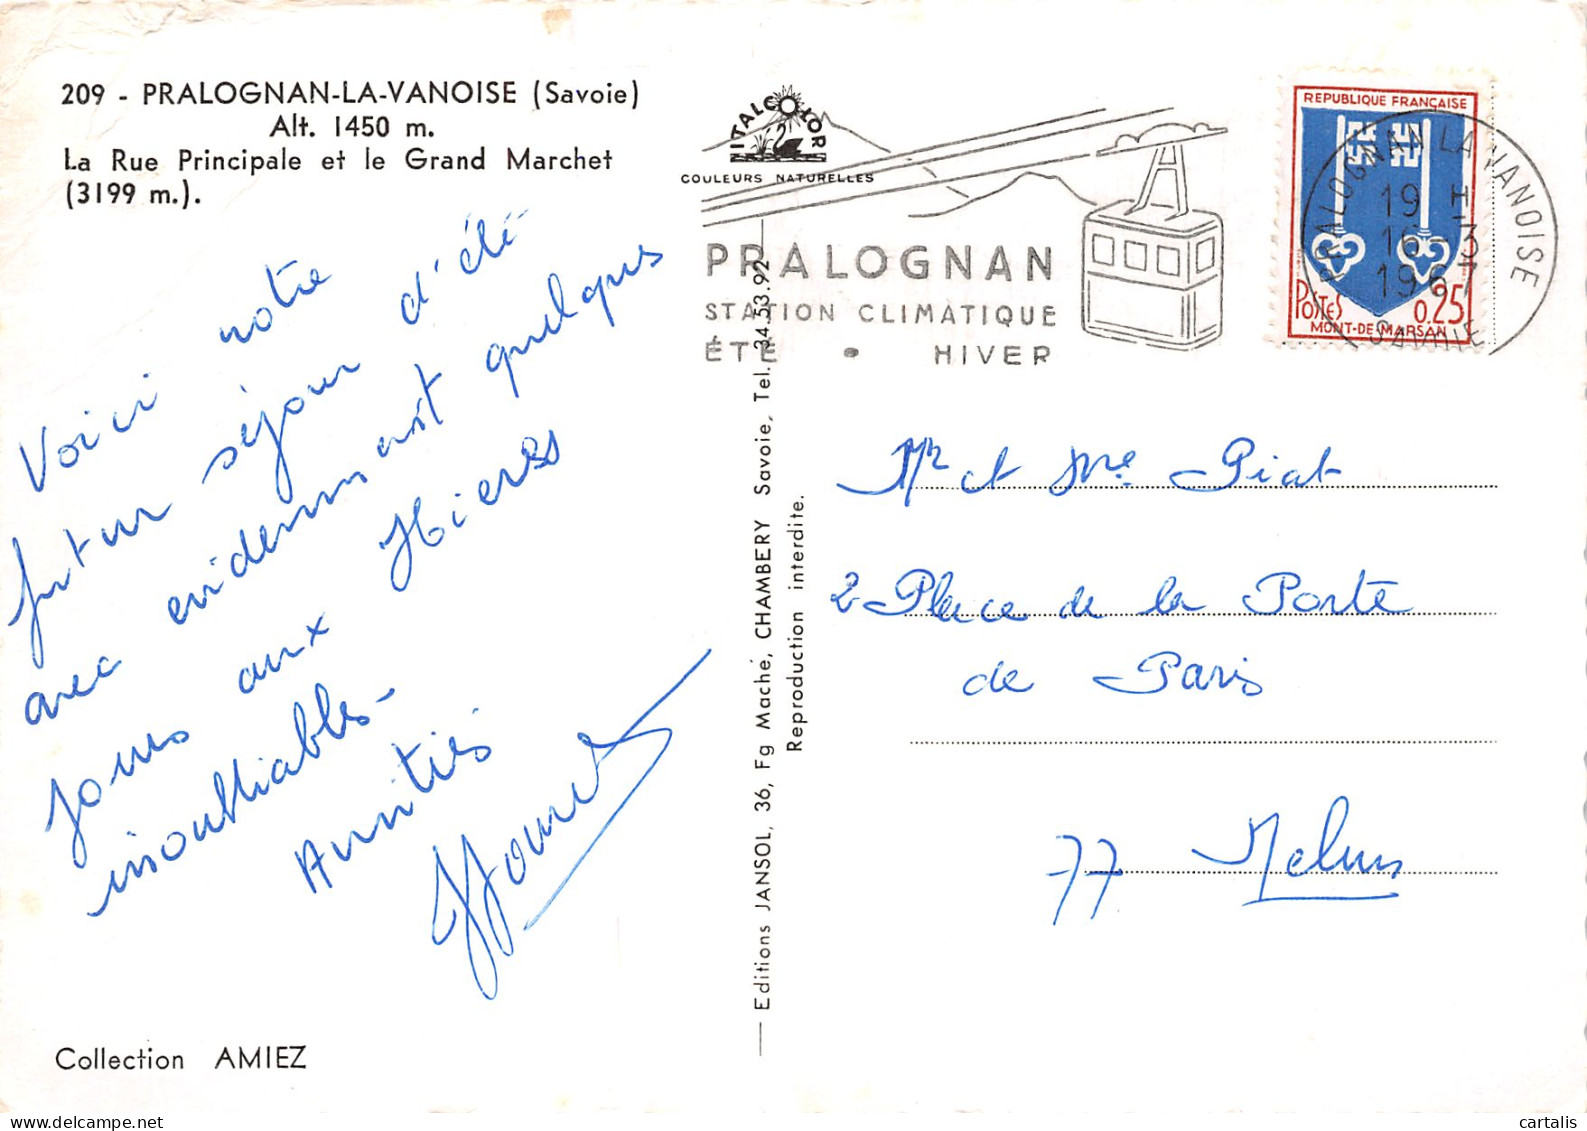 209 - PRALOGNAN-LA-VANOISE (Savoie)
Alt. 1450 m.
La Rue Principale et le Grand Marchet
(3199 m.).
Voici notre
futur séjour d'été
avec evidemment quelques
jours aux Hieres
inoubliables-
Amitiés
Collection AMIEZ
ITALCOLOR
COULEURS NATURELLES
PRALOGNAN
STATION CLIMATIQUE
ÉTÉ • HIVER
REPUBLIQUE FRANÇAISE
POSTES 0,25
MONT-DE-MARSAN
PRALOGNAN LA VANOISE
19 H
16-3
1967
SAVOIE
Editions JANSOL, 36, Fg Maché, CHAMBERY Savoie, Tel. 34.53.92
Reproduction interdite.
Mr et Mme Piat
2 Place de la Porte
de Paris
77 Melun
cartalis
www.delcampe.net